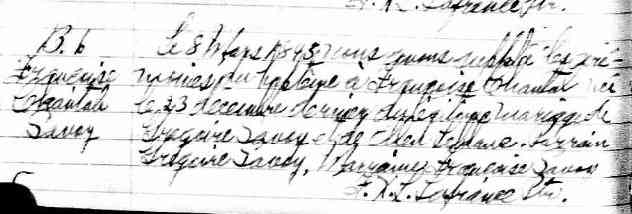 F. X. L. Lafrance Ptr.
B. 6
Françoise
Chantal
Savoy
Le 8 Mars 1843 nous avons suppléé les céré-
monies du baptême à Françoise Chantal née
le 23 décembre dernier du légitime mariage de
Grégoire Savoy et de . Parrain
Grégoire Savoy, Marraine Françoise Savoy
F. X. L. Lafrance Ptr.